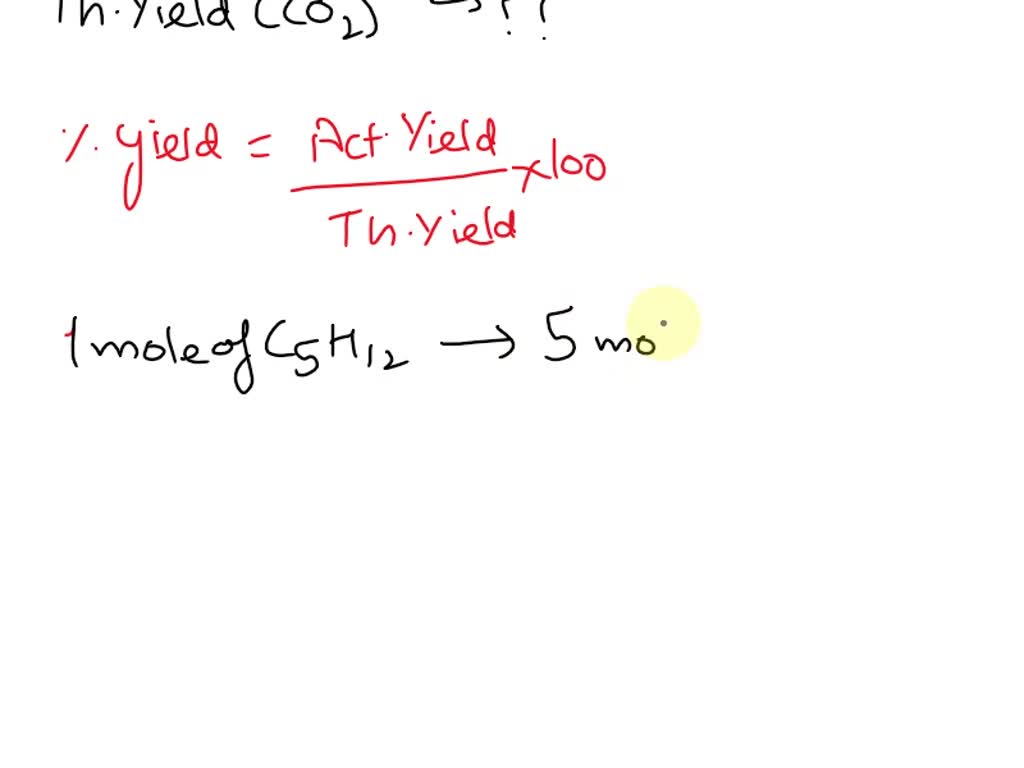 Th. Yield (CO2) → ??
%. yield = Act. Yield / Th. Yield × 100
1 mole of C5H12 → 5 mo